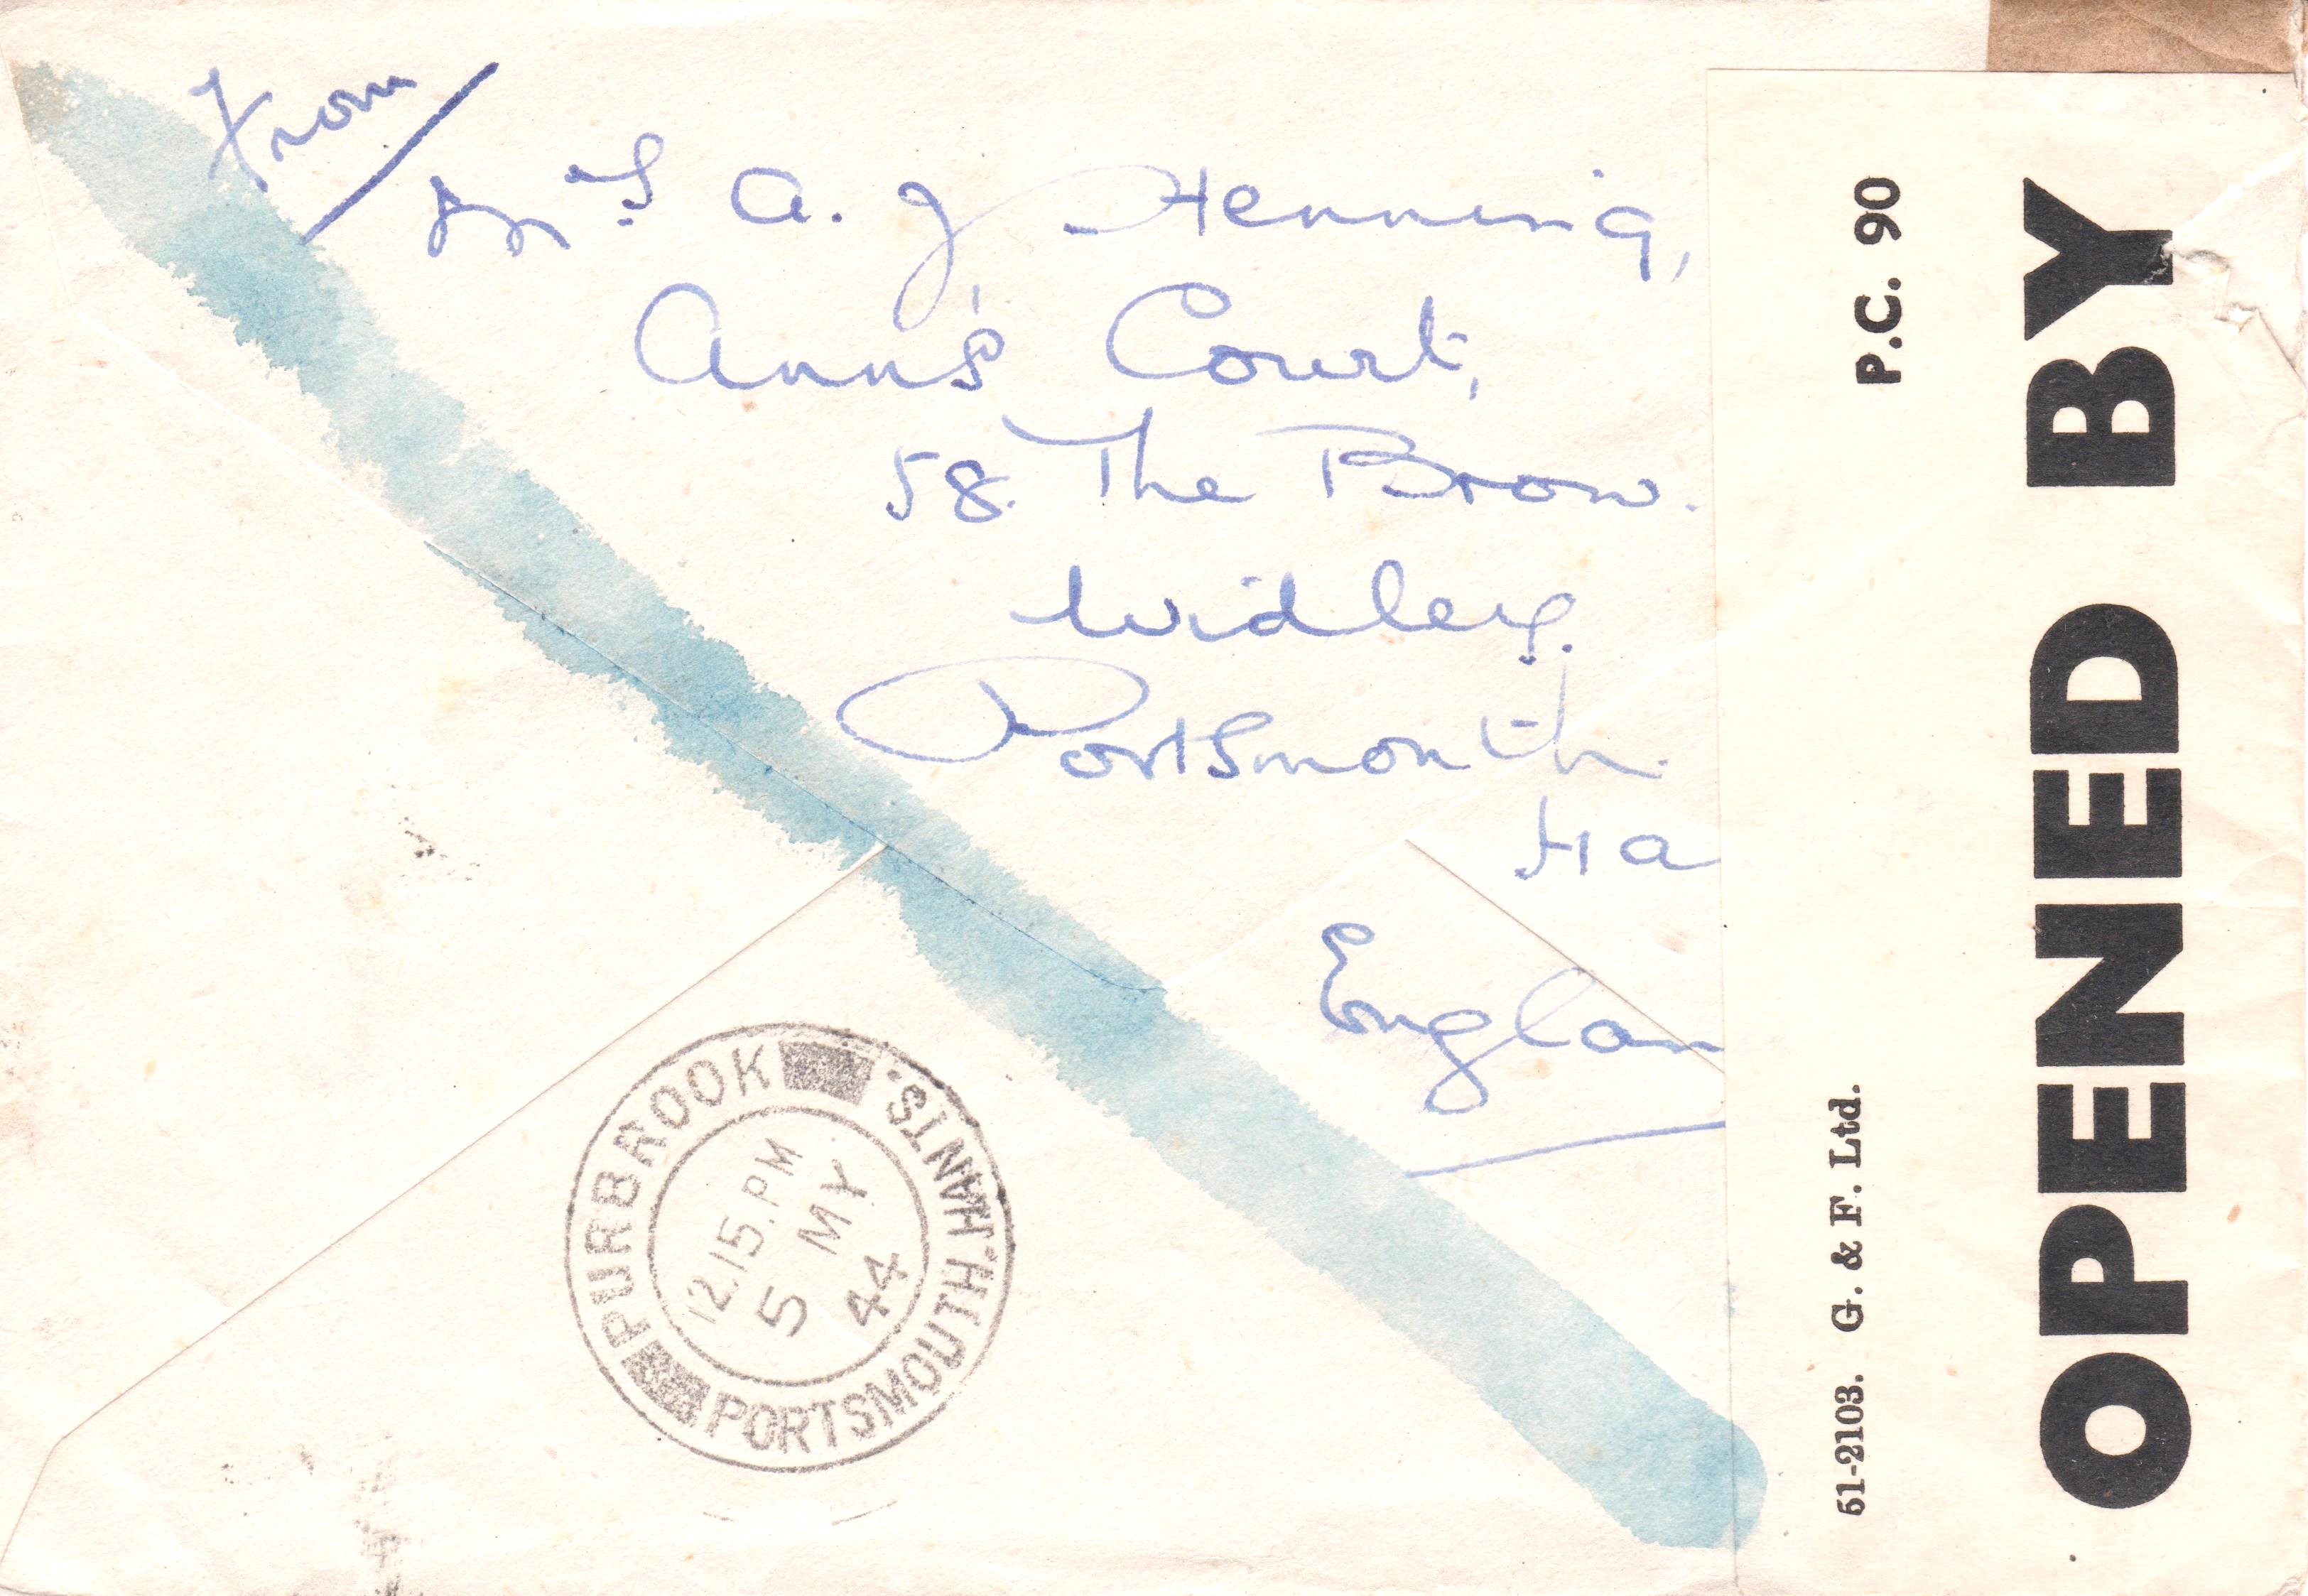 From/
Mrs A. J Henning,
Ann's Court,
58. The Brow.
Widley.
Portsmouth.
Ha
Englan
PURBROOK
PORTSMOUTH.HANTS.
12.15.PM
5 MY
44
P.C. 90
51-2103. G. & F. Ltd.
OPENED BY